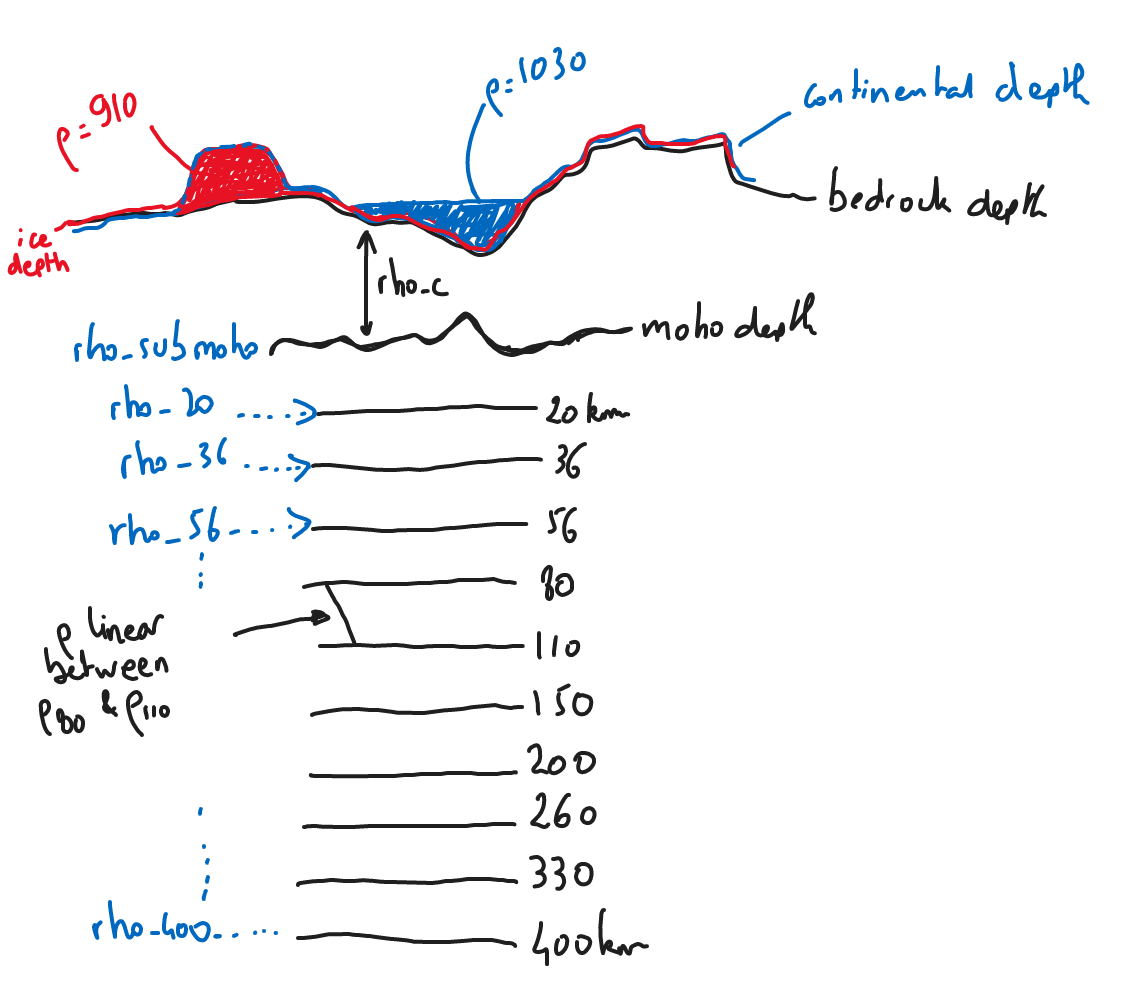 ρ=910
ρ=1030
continental depth
bedrock depth
ice
depth
rho_c
rho_submoho
moho depth
rho_20
20 km
rho_36
36
rho_56
56
80
ρ linear
between
ρ80 & ρ110
110
150
200
260
330
rho_400
400km